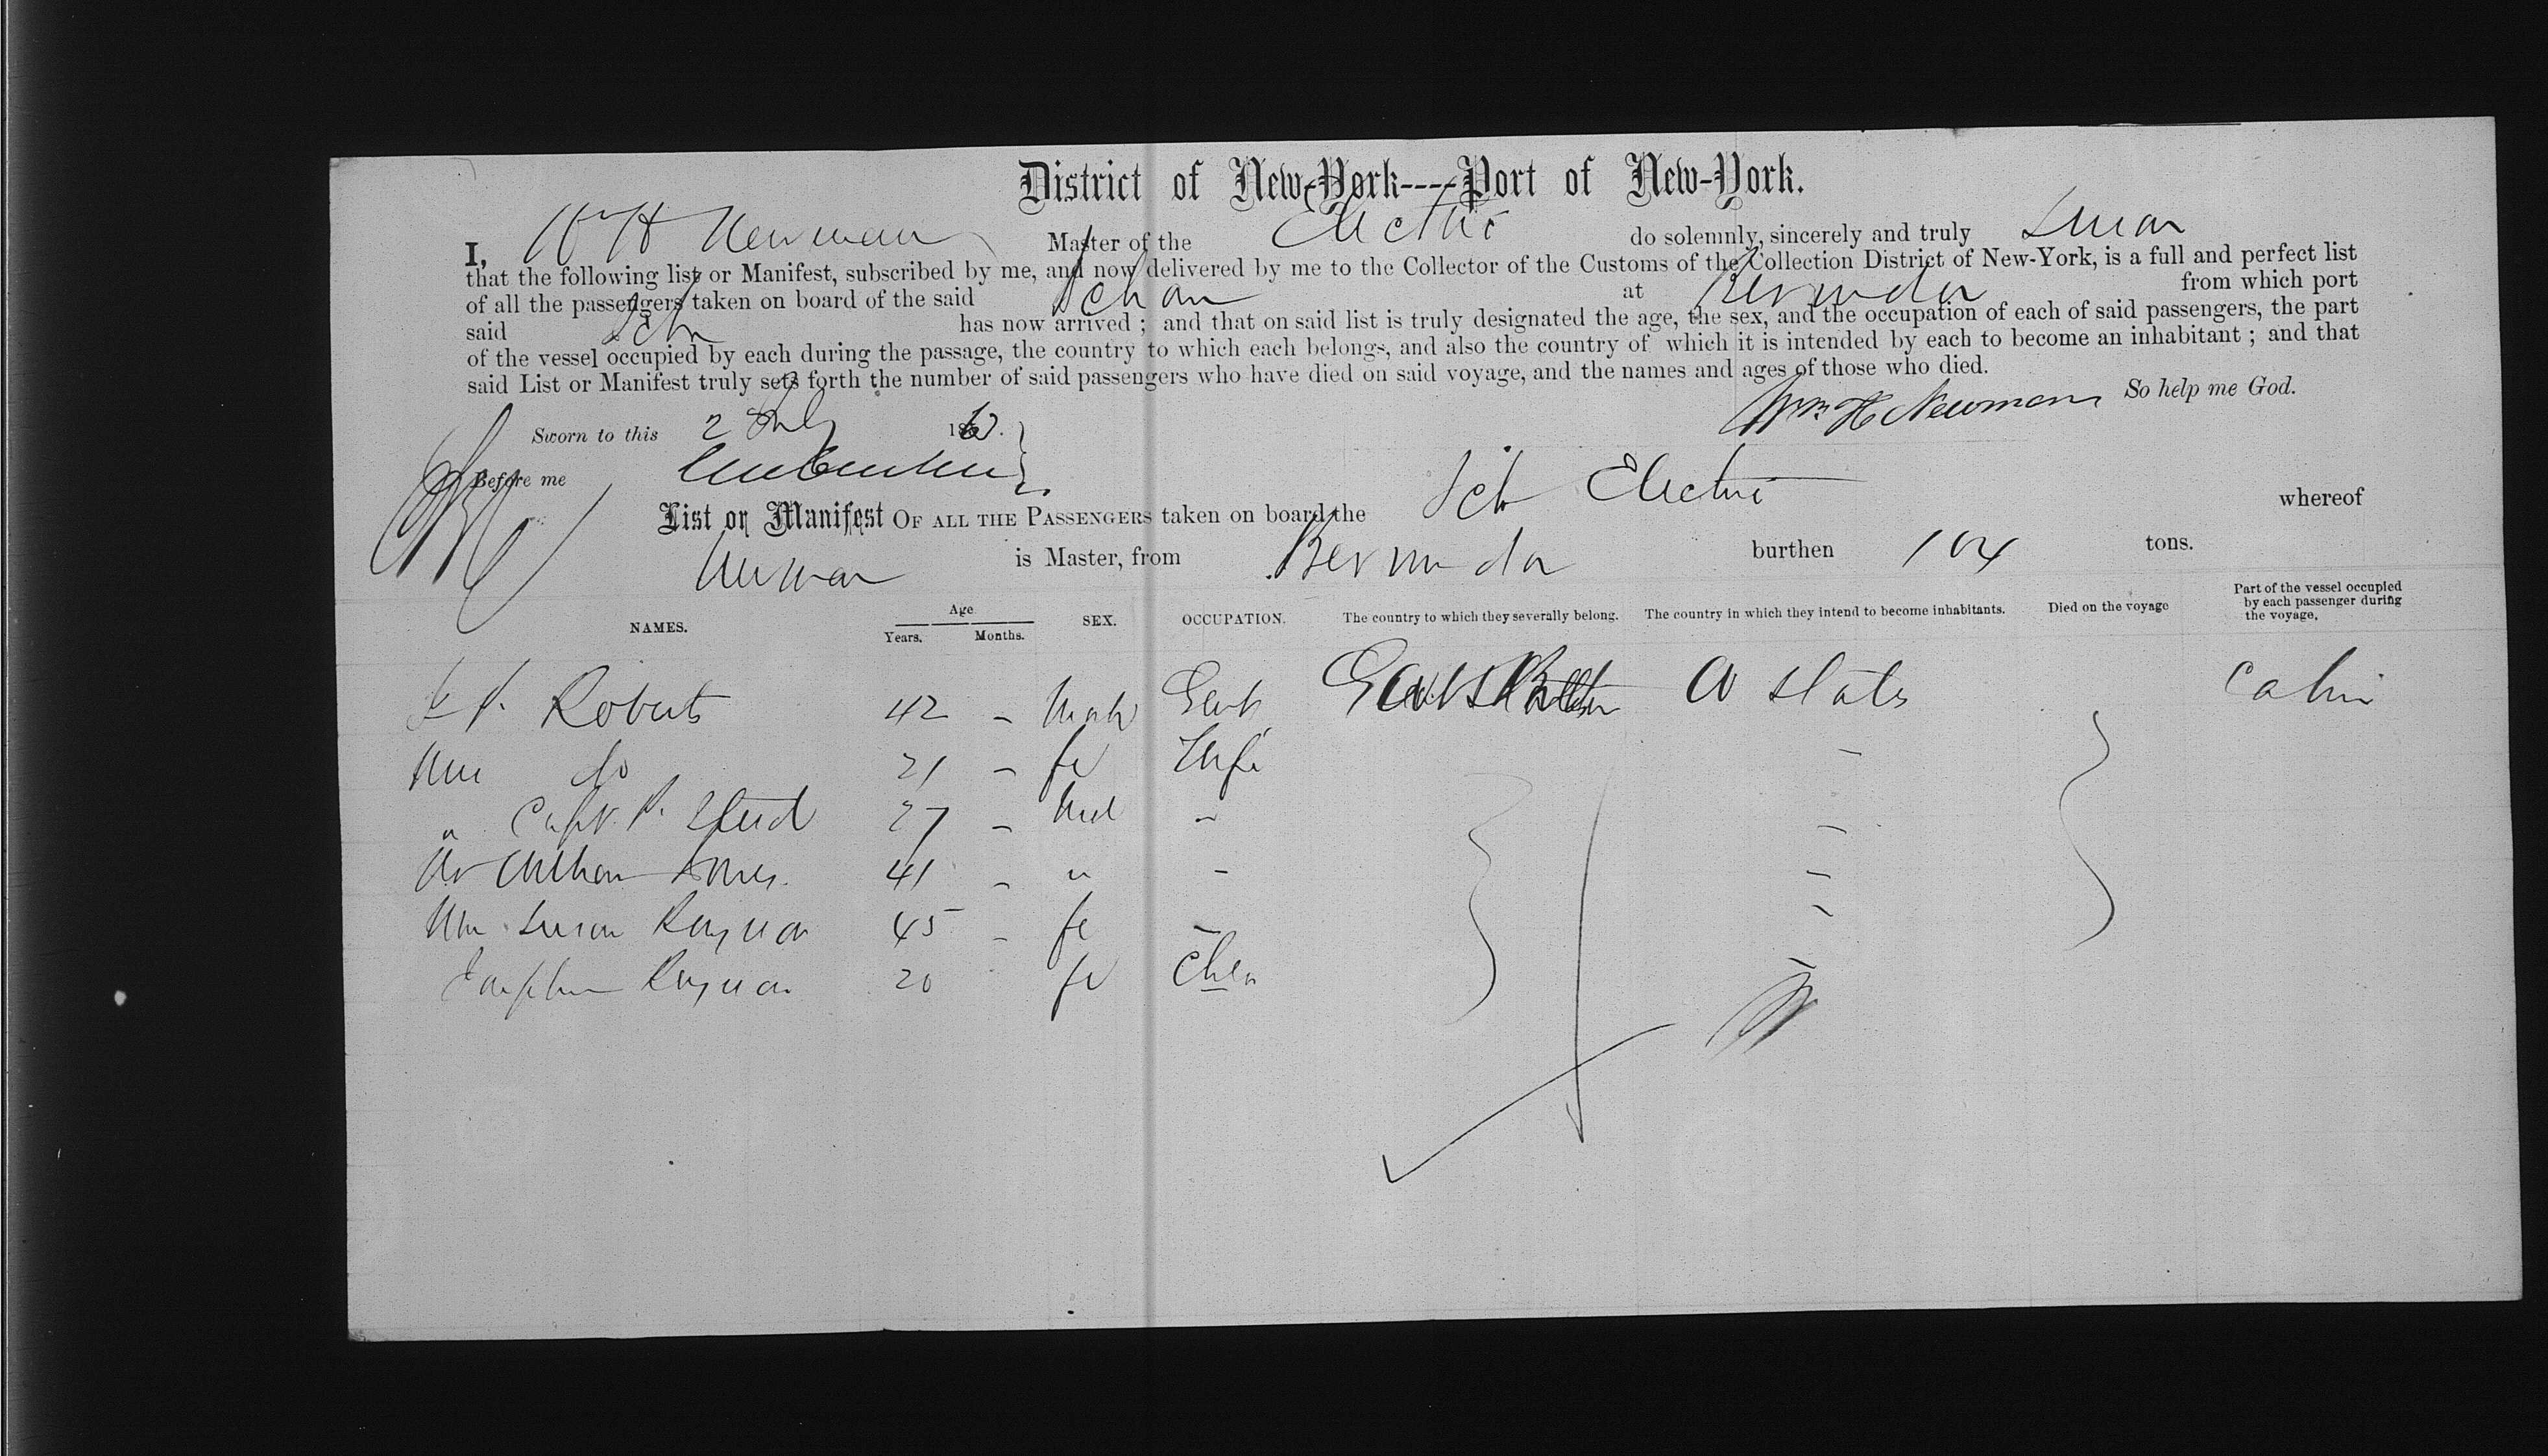 District of New-York----Port of New-York.
I, Wm H Newman Master of the Electric do solemnly, sincerely and truly Swear
that the following list or Manifest, subscribed by me, and now delivered by me to the Collector of the Customs of the Collection District of New-York, is a full and perfect list
of all the passengers taken on board of the said Schr at Bermuda from which port
said Sch has now arrived ; and that on said list is truly designated the age, the sex, and the occupation of each of said passengers, the part
of the vessel occupied by each during the passage, the country to which each belongs, and also the country of which it is intended by each to become an inhabitant ; and that
said List or Manifest truly sets forth the number of said passengers who have died on said voyage, and the names and ages of those who died.
Wm H Newman So help me God.
Sworn to this 2 July 186
Before me
List or Manifest OF ALL THE PASSENGERS taken on board the Sch Electric whereof
Newman is Master, from Bermuda burthen 104 tons.
NAMES. Age Years. Months. SEX. OCCUPATION. The country to which they severally belong. The country in which they intend to become inhabitants. Died on the voyage Part of the vessel occupied by each passenger during the voyage.
Roberts 42 - Male Gent Gt Britain U States Cabin
Mrs do 21 - fe Wife -
" Capt 27 - Mal - -
Mr 41 - " - -
Mrs Susan 45 - fe - -
20 fe -